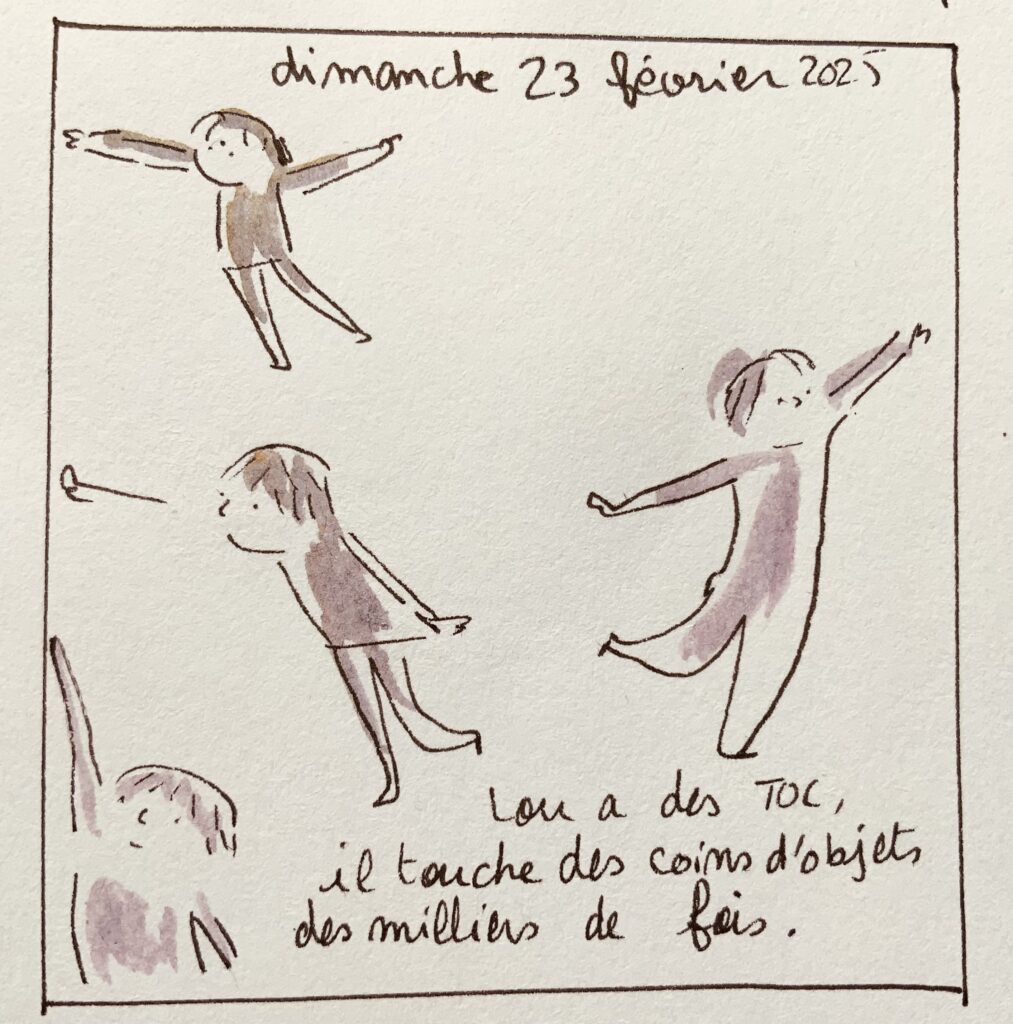 dimanche 23 février 2025
Lou a des TOC,
il touche des coins d'objets
des milliers de fois.